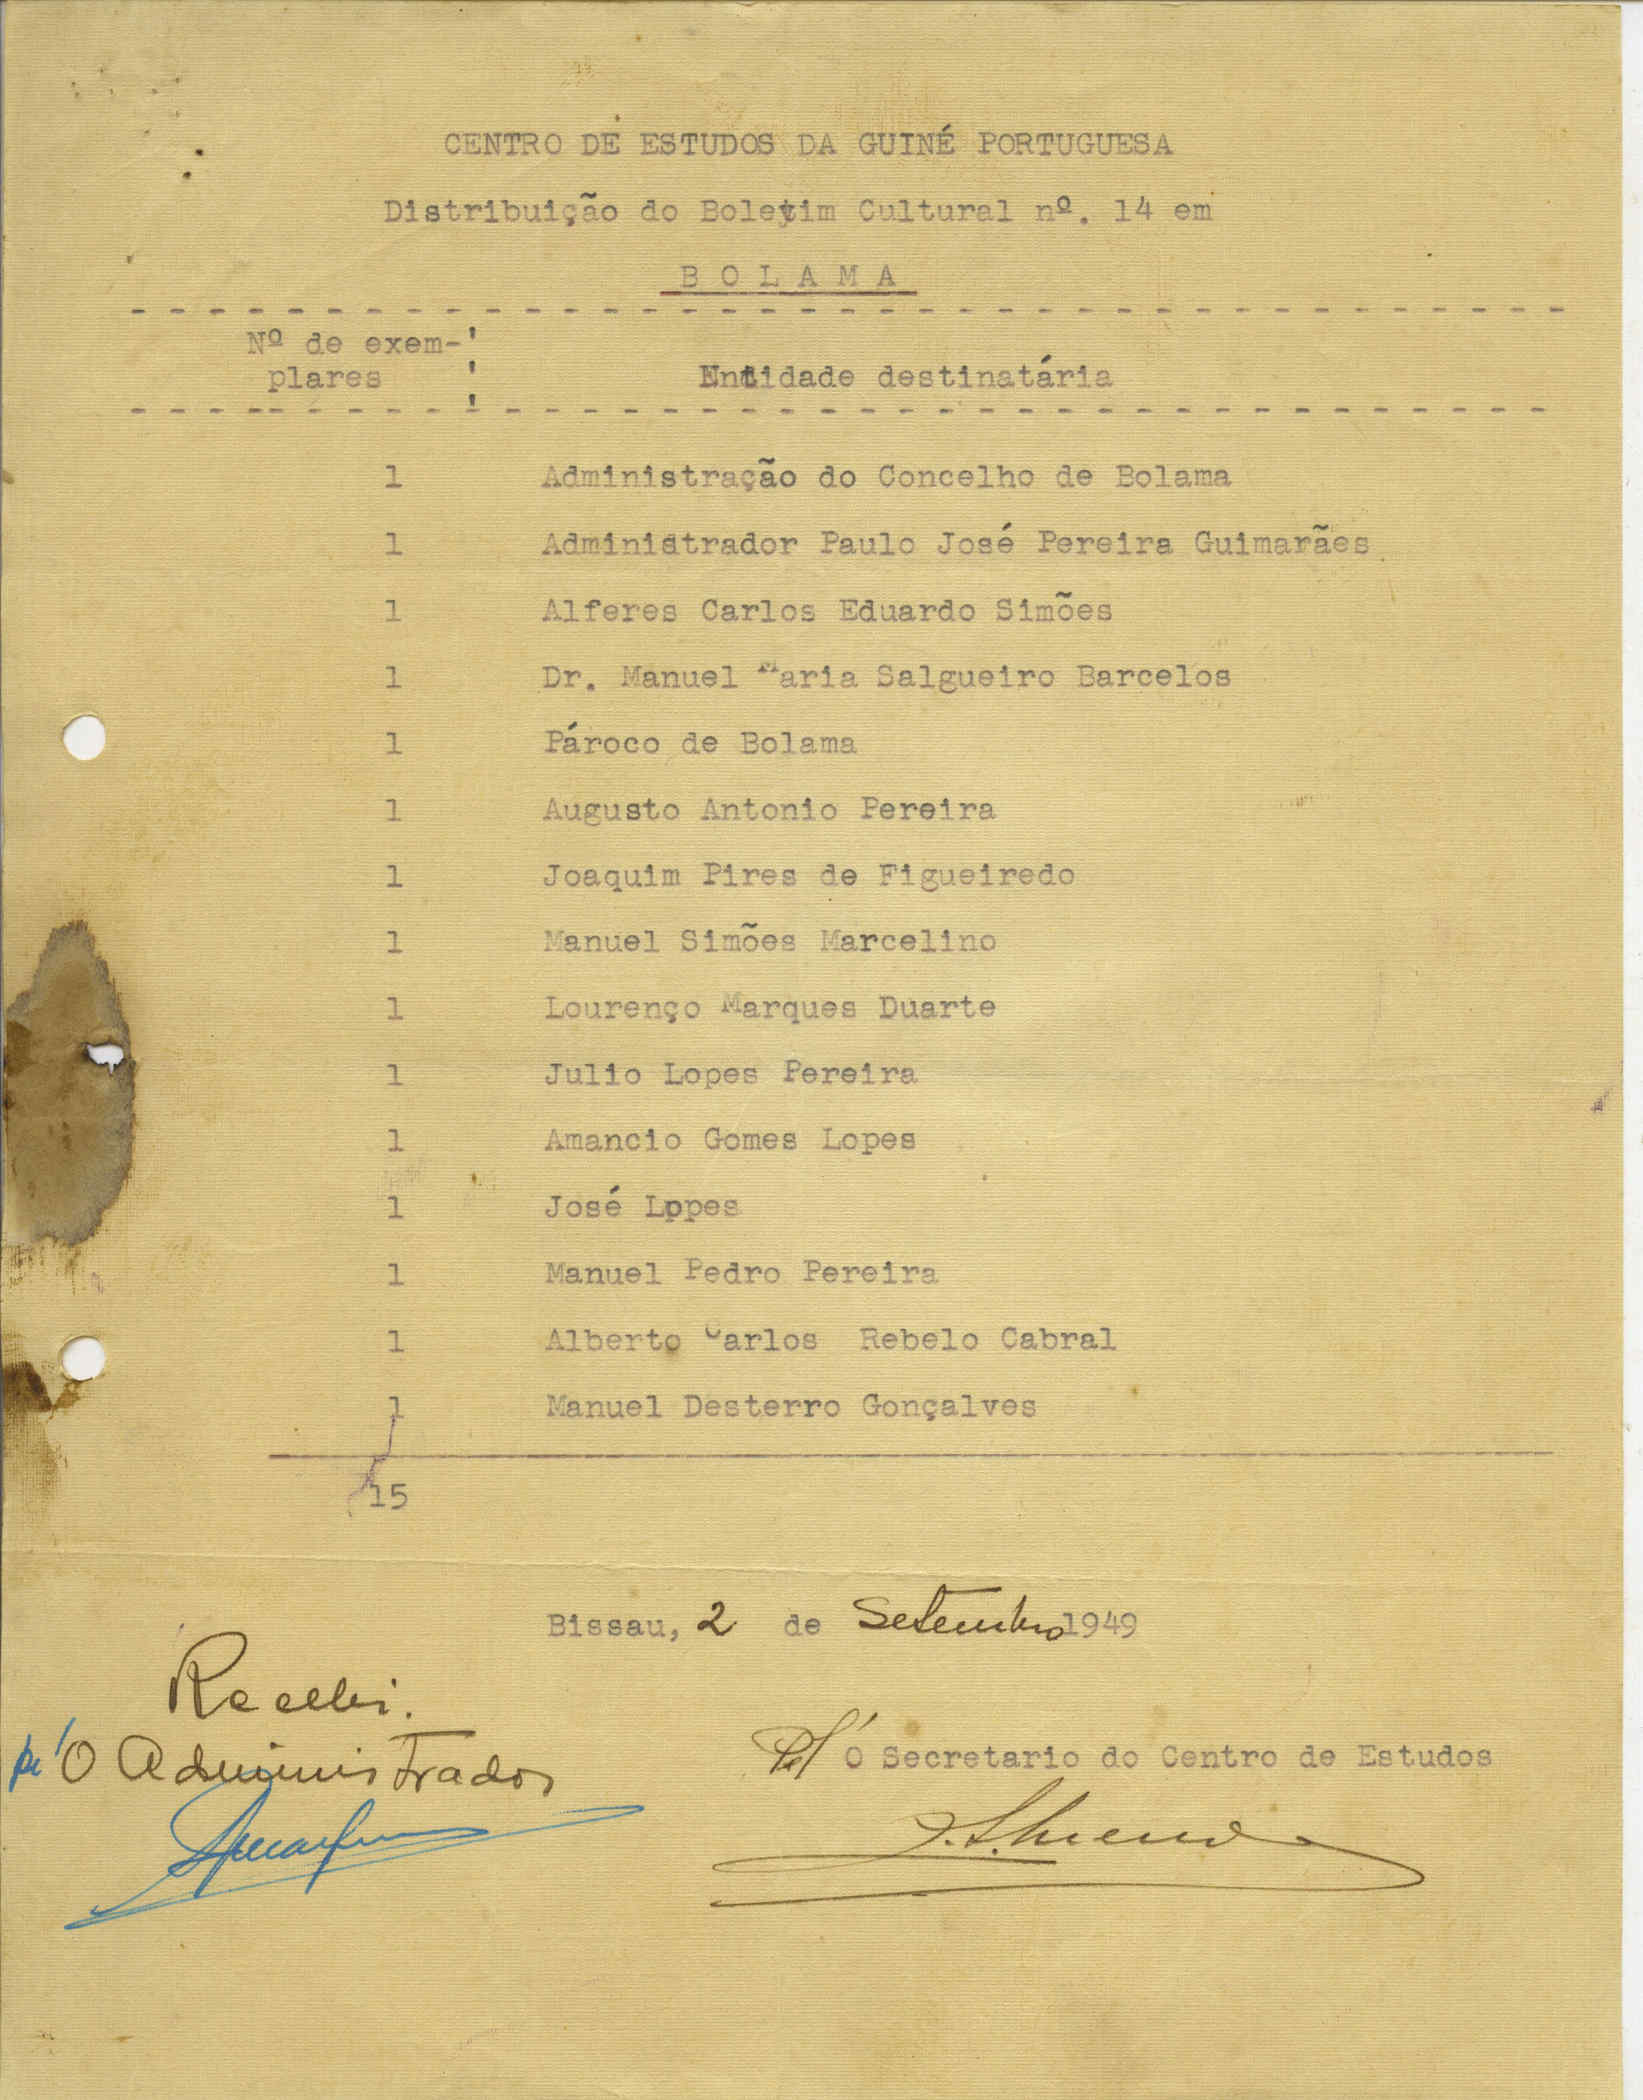 CENTRO DE ESTUDOS DA GUINÉ PORTUGUESA
Distribuição do Boletim Cultural nº. 14 em
BOLAMA
Nº de exem-
plares
Entidade destinatária
1 Administração do Concelho de Bolama
1 Administrador Paulo José Pereira Guimarães
1 Alferes Carlos Eduardo Simões
1 Dr. Manuel Maria Salgueiro Barcelos
1 Pároco de Bolama
1 Augusto Antonio Pereira
1 Joaquim Pires de Figueiredo
1 Manuel Simões Marcelino
1 Lourenço Marques Duarte
1 Julio Lopes Pereira
1 Amancio Gomes Lopes
1 José Lopes
1 Manuel Pedro Pereira
1 Alberto Carlos Rebelo Cabral
1 Manuel Desterro Gonçalves
15
Bissau, 2 de Setembro 1949
Recebi.
O Administrador
O Secretario do Centro de Estudos